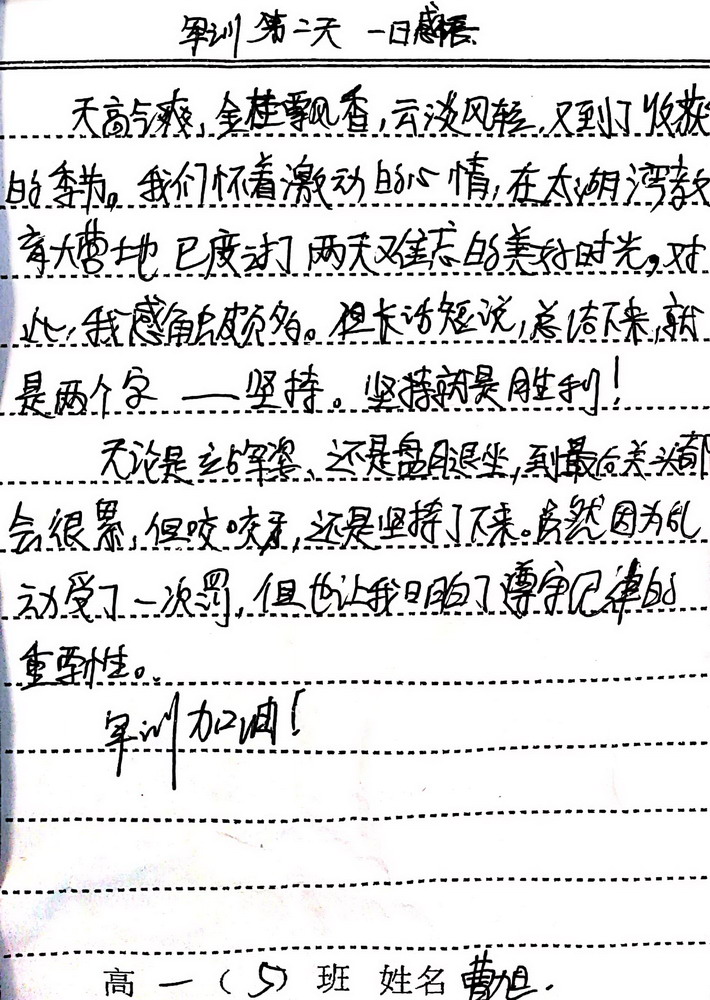 军训第二天 一日感悟
天高气爽,金桂飘香,云淡风轻,又到了收获
的季节。我们怀着激动的心情,在太湖湾教
育大营地已度过了两天难忘的美好时光。对
此,我感触颇多。但长话短说,总结下来,就
是两个字——坚持。坚持就是胜利!
无论是立的军姿、还是盘腿坐,到最后关头都
会很累,但咬咬牙,还是坚持了下来。虽然因为乱
动受了一次罚,但也让我明白了遵守纪律的
重要性。
军训加油!
高一(5)班 姓名 曹旭.